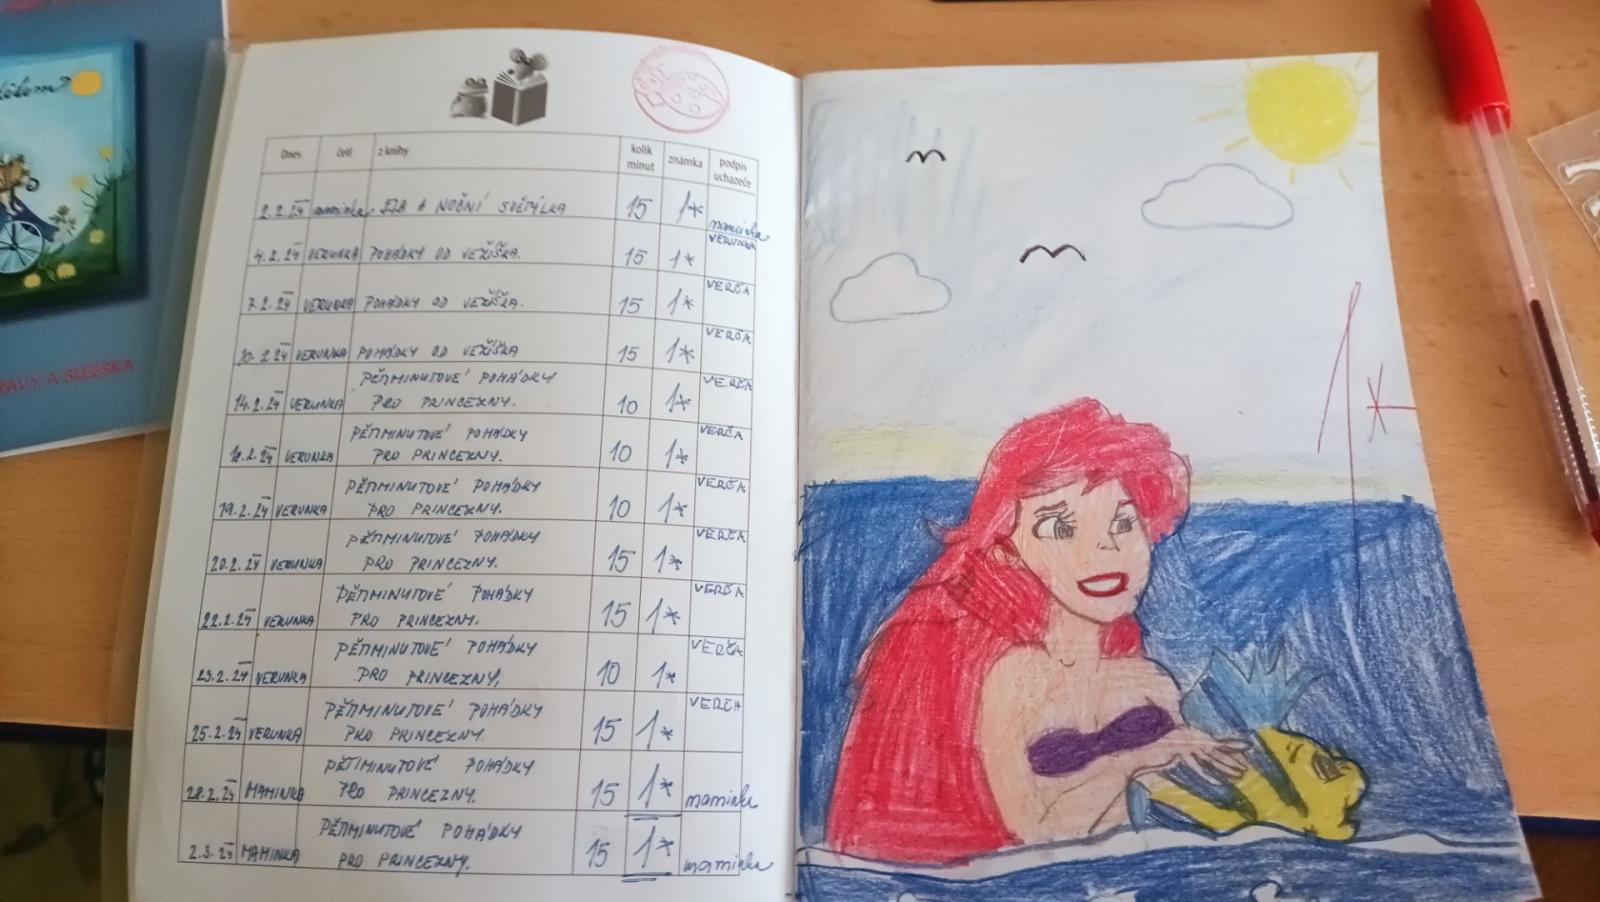 Dnes čtl z knihy kolik minut známka podpis uchazeče
2.2.24 maminka ELA A NOČNÍ SVĚTÝLKA 15 1* maminka
4.2.24 VERUNKA POHÁDKY OD VEŽÍŠKA. 15 1* VERUNKA
7.2.24 VERUNKA POHÁDKY OD VEŽÍŠKA. 15 1* VERČA
10.2.24 VERUNKA POHÁDKY OD VEŽÍŠKA 15 1* VERČA
14.2.24 VERUNKA PĚTIMINUTOVÉ POHÁDKY
PRO PRINCEZNY. 10 1* VERČA
2.24 VERUNKA PĚTIMINUTOVÉ POHÁDKY
PRO PRINCEZNY. 10 1* VERČA
19.2.24 VERUNKA PĚTIMINUTOVÉ POHÁDKY
PRO PRINCEZNY. 10 1* VERČA
20.2.24 VERUNKA PĚTIMINUTOVÉ POHÁDKY
PRO PRINCEZNY. 15 1* VERČA
22.2.24 VERUNKA PĚTIMINUTOVÉ POHÁDKY
PRO PRINCEZNY. 15 1* VERČA
23.2.24 VERUNKA PĚTIMINUTOVÉ POHÁDKY
PRO PRINCEZNY. 10 1* VERČA
25.2.24 VERUNKA PĚTIMINUTOVÉ POHÁDKY
PRO PRINCEZNY. 15 1* VERČA
28.2.24 MAMINKA PĚTIMINUTOVÉ POHÁDKY
PRO PRINCEZNY. 15 1* maminka
2.3.24 MAMINKA PĚTIMINUTOVÉ POHÁDKY
PRO PRINCEZNY. 15 1* maminka
1*
A SLEZSKA